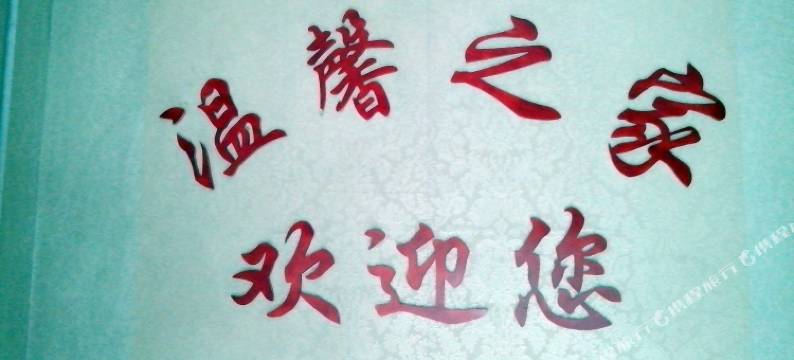 温馨之家
欢迎您
携程旅行 携程旅行